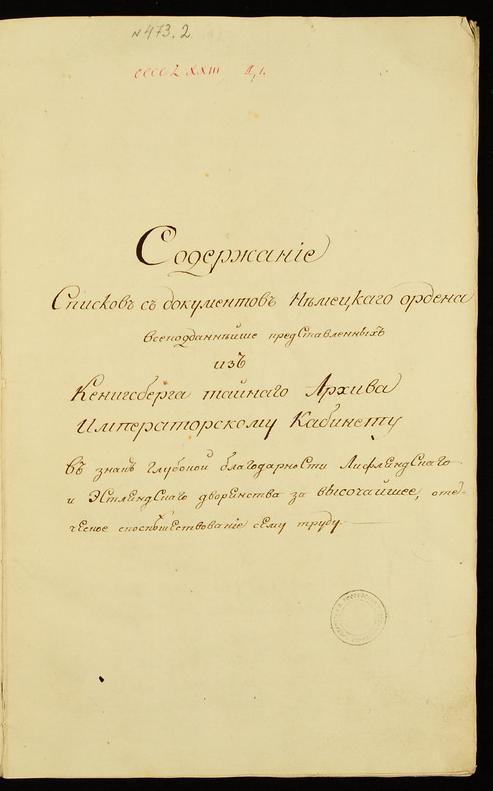 № 473.2
CCCCLXXIII
Содержаніе
Списковъ съ документовъ Нѣмецкаго ордена
всеподданнѣйше представленныхъ
изъ
Кенигсберга тайнаго Архива
Императорскому Кабинету
въ знакъ глубокой благодарности Лифляндскаго
и Эстляндскаго дворянства за высочайшее, оте-
ческое споспѣшествованіе сему труду.